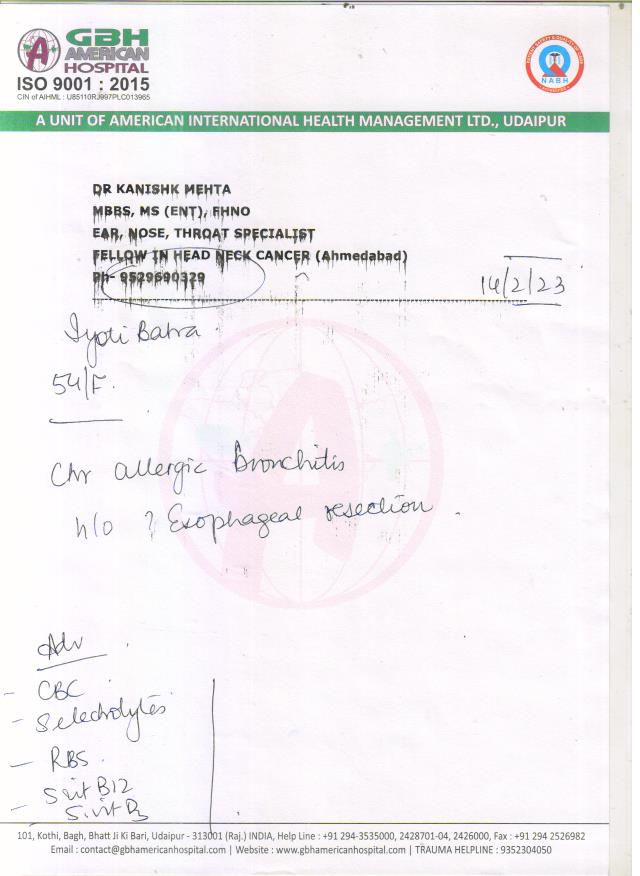 GBH
AMERICAN
HOSPITAL
ISO 9001 : 2015
CIN of AIHML : U85110RJ997PLC013965
NABH
A UNIT OF AMERICAN INTERNATIONAL HEALTH MANAGEMENT LTD., UDAIPUR
DR KANISHK MEHTA
MBBS, MS (ENT), FHNO
EAR, NOSE, THROAT SPECIALIST
FELLOW IN HEAD NECK CANCER (Ahmedabad)
Ph- 9529690329
14/2/23
Jyoti Batra
54/F.
Chr allergic Bronchitis
h/o ? Esophageal resection .
Adv
- CBC
- S electrolytes
- RBS
S vit B12
- S. vit D3
101, Kothi, Bagh, Bhatt Ji Ki Bari, Udaipur - 313001 (Raj.) INDIA, Help Line : +91 294-3535000, 2428701-04, 2426000, Fax : +91 294 2526982
Email : contact@gbhamericanhospital.com | Website : www.gbhamericanhospital.com | TRAUMA HELPLINE : 9352304050